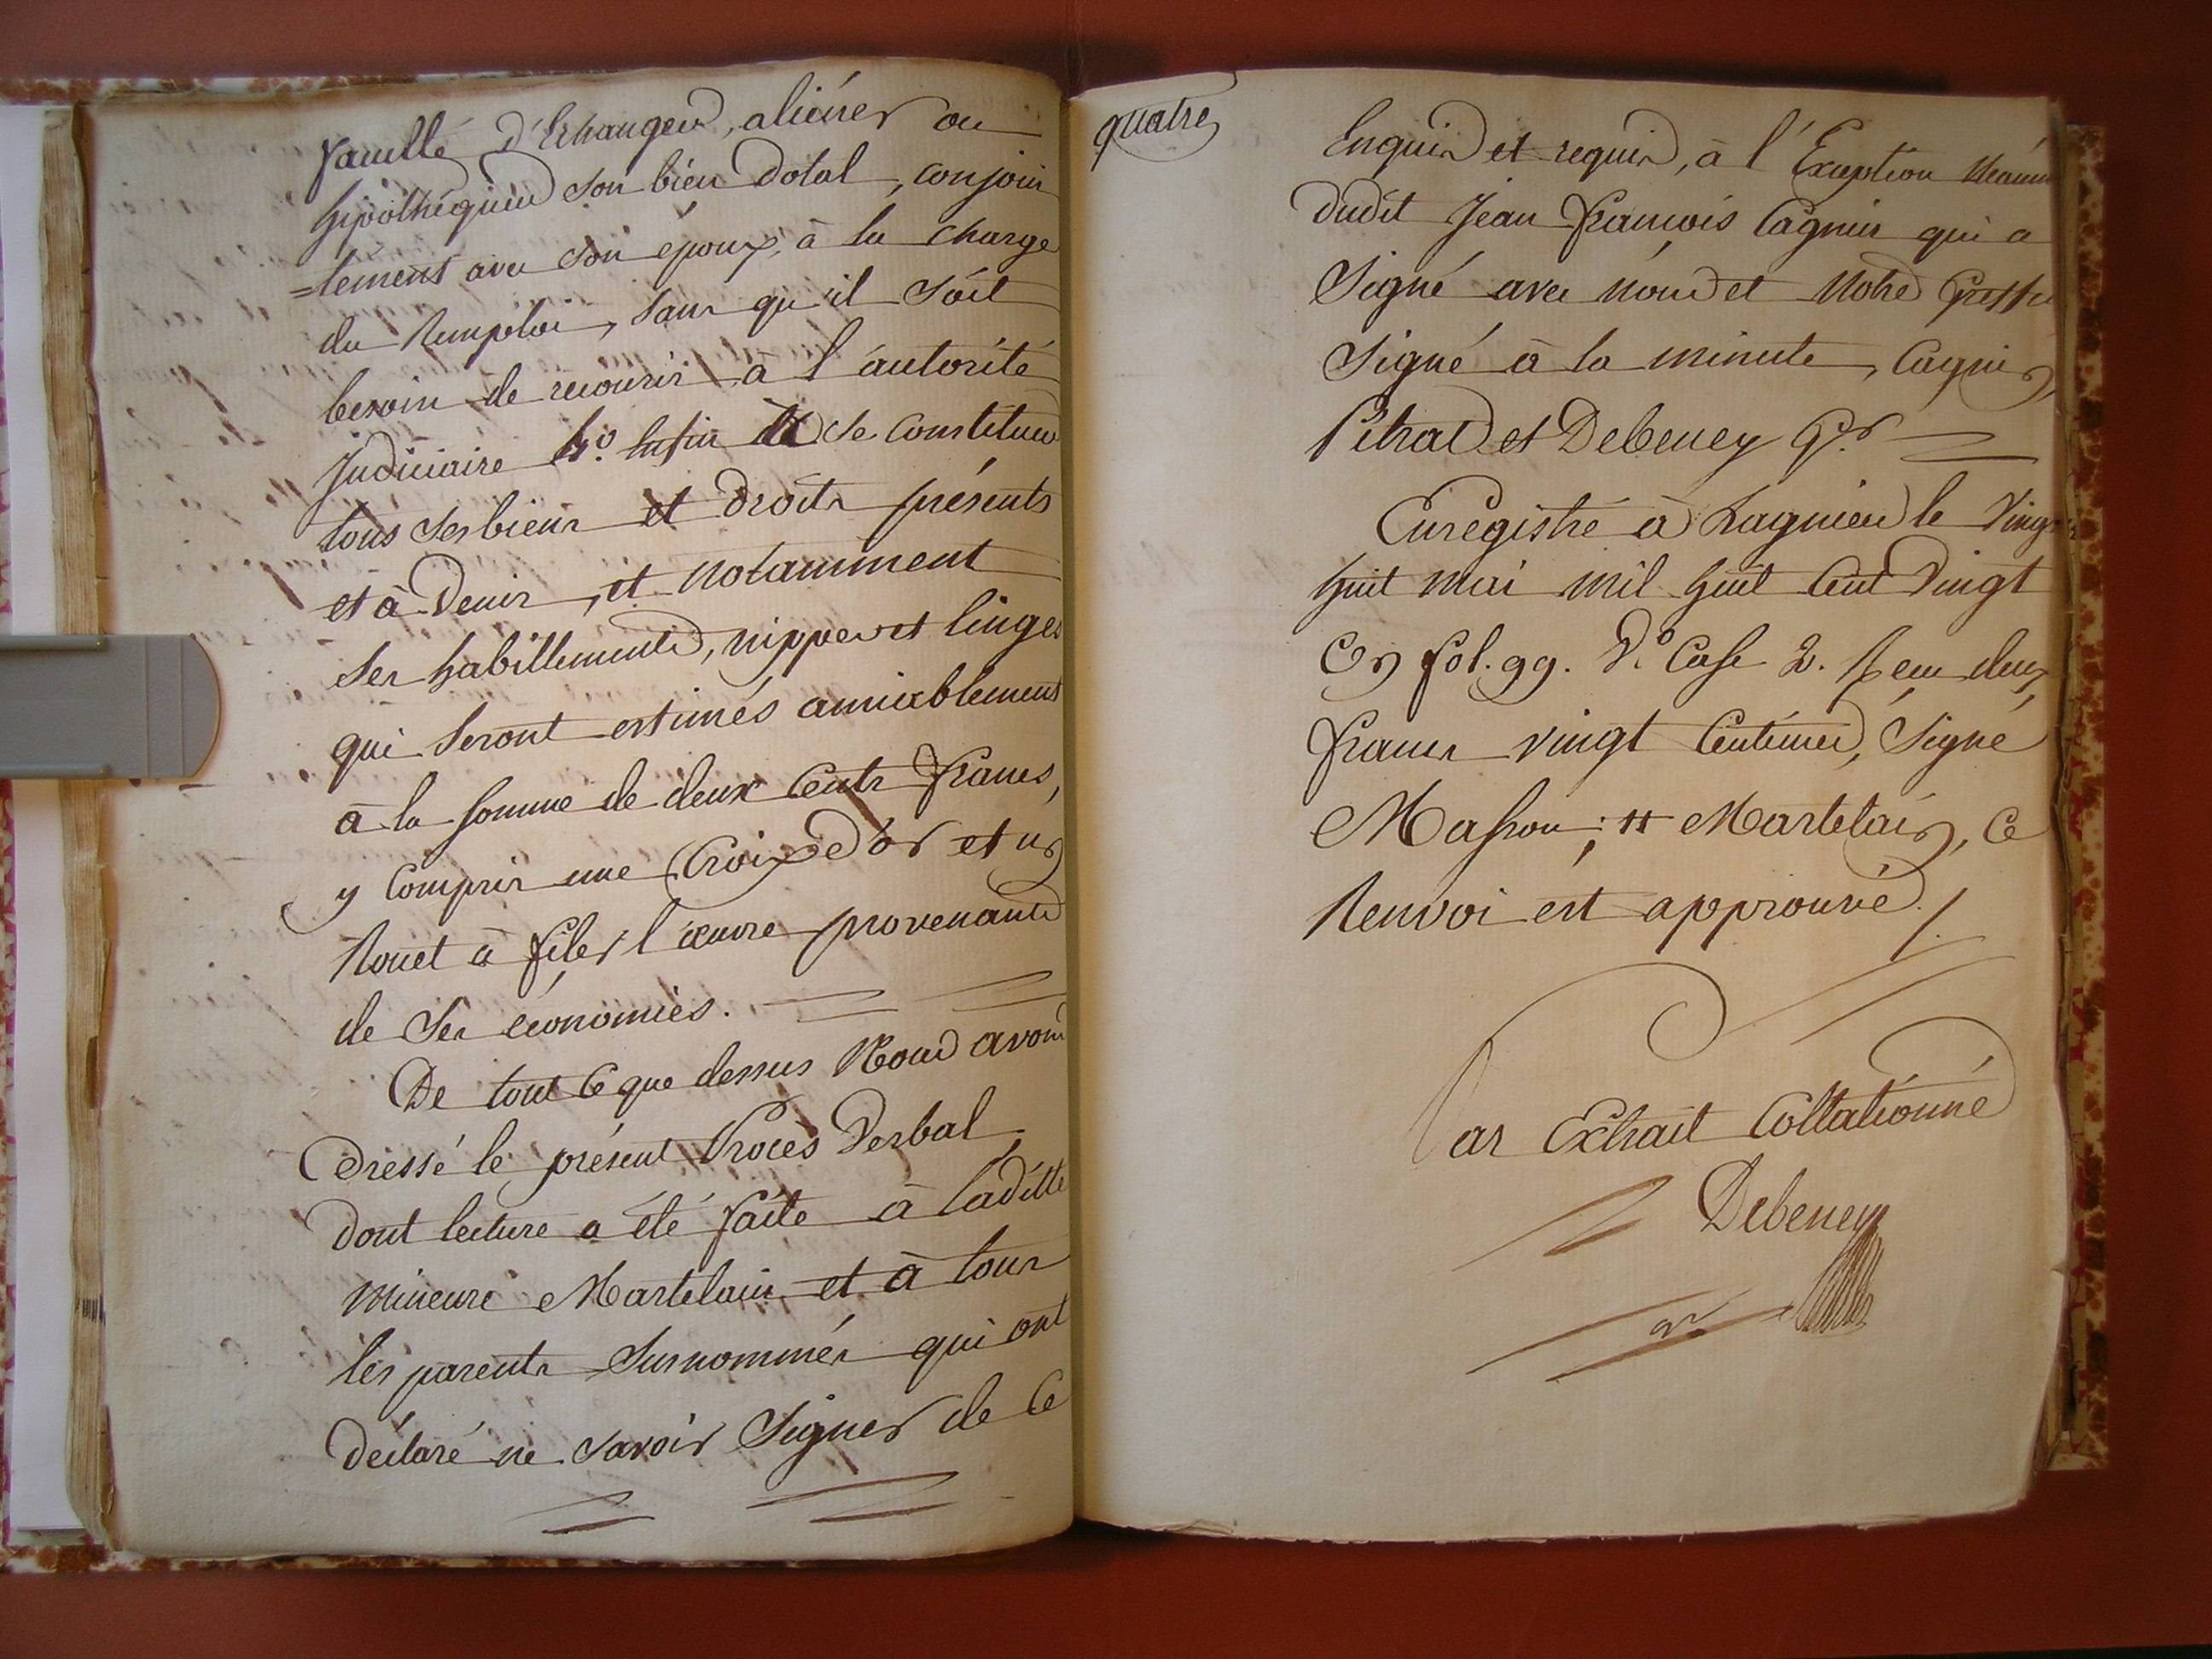 faculté d'Echanger, aliéner ou
hipothéquer son bien dotal, conjoin
=tement avec son époux, à la charge
du remploi, sans qu'il soit
besoin de recourir à l'autorité
judiciaire 4.º Enfin de se constituer
tous ses biens et droits présents
et à Venir, et notamment
ses habillements, nippes et linges
qui seront estimés amiablement
à la somme de deux Cents francs,
y Compris une Croix d'or et un
Rouet à filer l'œuvre provenants
de ses économies.
De tout Ce que dessus Nous avons
Dressé le présent Procès Verbal
dont lecture a été faite à laditte
mineure Martelain et à tous
les parents Surnommés qui ont
déclaré ne savoir Signer de Ce
quatre
Enquis et requis, à l'Exception
dudit Jean François Cagnin qui a
Signé avec nous et Notre Greffier
Signé à la minute, Cagnin,
Pitrat et Debeney Gr.
Enregistré à Lagnieu le Vingt
huit mai mil huit Cent Vingt
Un fol. 99. V.º Case 2. R eu deux
francs vingt Centimes, Signé
Masson; # Martelain, Ce
Renvoi est approuvé./.
Par Extrait Collationné
Debeney